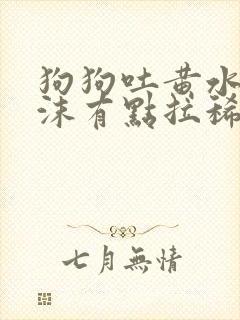 狗狗吐黃水
沫有點拉稀
七月無情